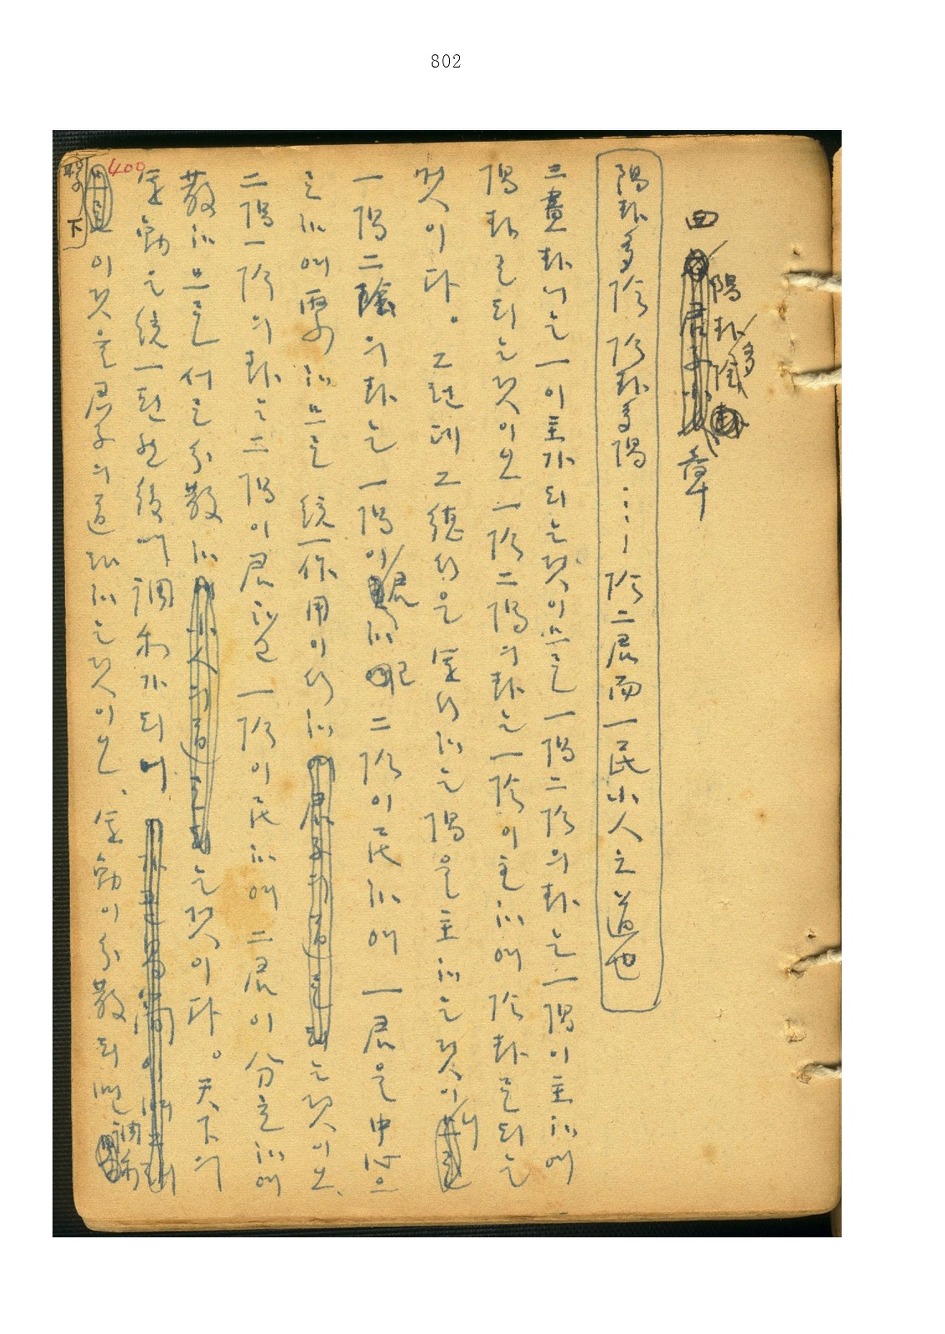 802
四 陽卦多陰 章
陽卦多陰 陰卦多陽……陰二君而一民小人之道也
三畫卦에는 一이 主가 되는 것이므로 一陽二陰의 卦는 一陽이 主하여
陽卦로 되는 것이오 一陰二陽의 卦는 一陰이 主하여 陰卦로 되는
것이다。그런데 그 德行은 運行하는 陽을 主하는 것이니
一陽二陰의 卦는 一陽이 君하고 二陰이 民하여 一君을 中心으
로 하여 하므로 統一作用이 行하는 것이오、
二陽一陰의 卦는 二陽이 君하고 一陰이 民하여 二君이 分立하여
散하므로 서로 分散하는 것이다。天下의
運動은 統一된 然後에 調和가 되매
이것을 君子의 道라 하는 것이오、運動이 分散되면 調和
繫下
400